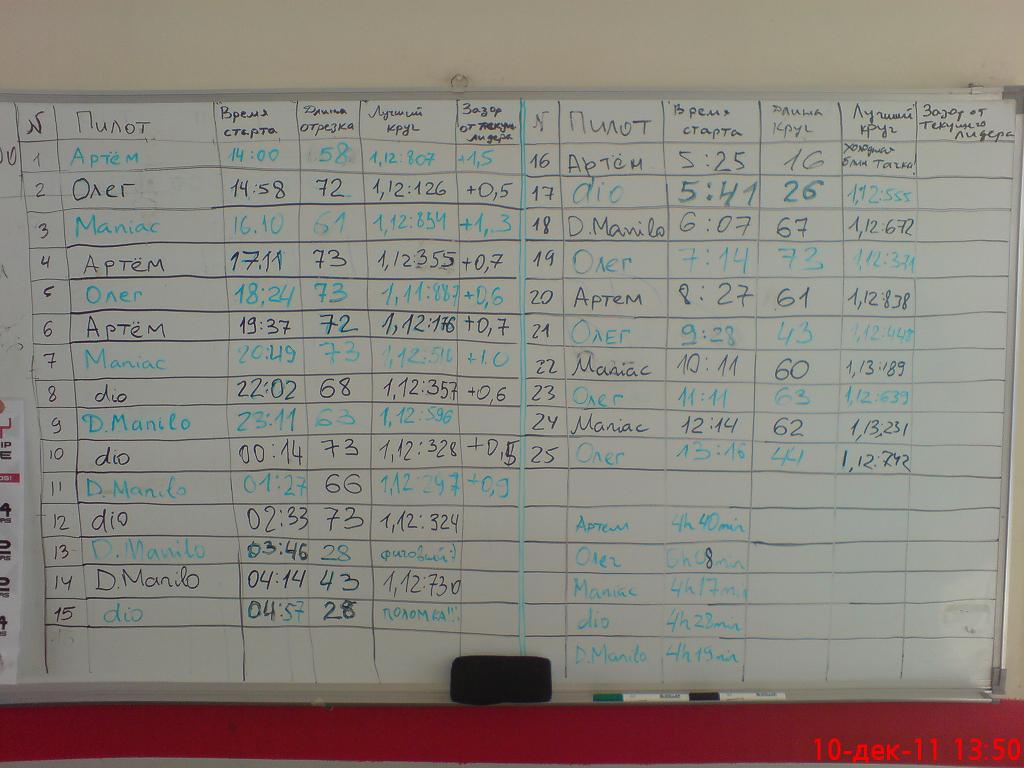 N Пилот Время старта Длина отрезка Лучший круг Зазор от текущ лидера
1 Артём 14:00 58 1,12:807 +1,5
2 Олег 14:58 72 1,12:126 +0,5
3 Maniac 16.10 61 1,12:834 +1,3
4 Артём 17.11 73 1,12:355 +0,7
5 Олег 18:24 73 1,11:887 +0,6
6 Артём 19:37 72 1,12:176 +0,7
7 Maniac 20:49 73 1,12:510 +1.0
8 dio 22:02 68 1,12:357 +0,6
9 D.Manilo 23:11 63 1,12:596
10 dio 00:14 73 1,12:328 +0,5
11 D.Manilo 01:27 66 1,12:297 +0,9
12 dio 02:33 73 1,12:324
13 D.Manilo 03:46 28 фиговый:)
14 D.Manilo 04:14 43 1,12:730
15 dio 04:57 28 поломка!!
N Пилот Время старта Длина круг Лучший круг Зазор от текущего лидера
16 Артём 5:25 16 холодная блин тачка!
17 dio 5:41 26 1,12:555
18 D.Manilo 6:07 67 1,12:672
19 Олег 7:14 73 1,12:371
20 Артем 8:27 61 1,12:838
21 Олег 9:28 43 1,12:448
22 Maniac 10:11 60 1,13:189
23 Олег 11:11 63 1,12:639
24 Maniac 12:14 62 1,13,231
25 Олег 13:16 44 1,12:742
Артем 4h 40min
Олег 6h 08min
Maniac 4h 17min
dio 4h 28min
D.Manilo 4h 19min
10-дек-11 13:50